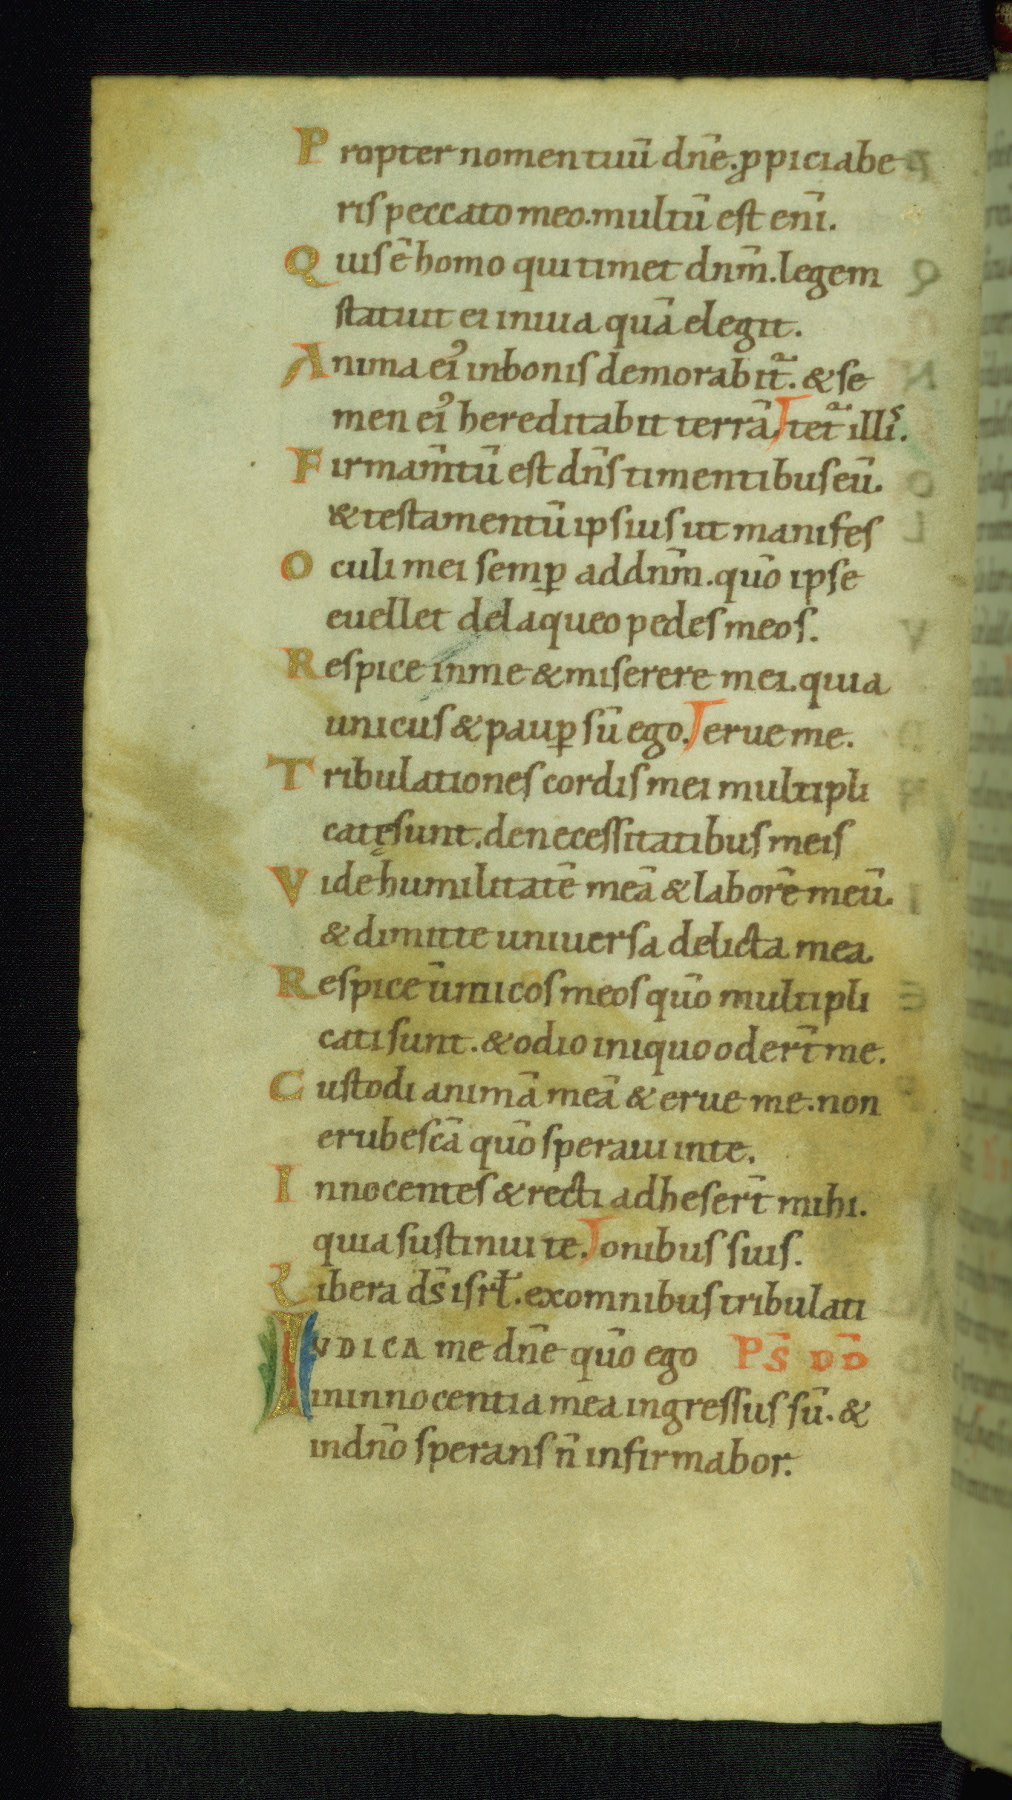 Propter nomen tuū dn̄e. ꝓpiciabe
ris peccato meo. multū est eni̅.
Quis ē homo qui timet dnm̄. legem
statuit ei in uia quā elegit.
Anima ei᾽ in bonis demorabit̄. & se
men ei᾽ hereditabit terrā. tet̄ illi᾽.
Firmam̄tū est dn̄s timentibus eū.
& testamentū ipsius ut manifes
Oculi mei semp̱ ad dnm̄. quō ipse
euellet de laqueo pedes meos.
Respice in me & miserere mei. quia
unicus & paup̱ sū ego. erue me.
Tribulationes cordis mei multipli
catę sunt. de necessitatibus meis
Vide humilitatē meā & laborē meū.
& dimitte uniuersa delicta mea.
Respice inimicos meos quō multipli
cati sunt. & odio iniquo odert̄ me.
Custodi animā meā & erue me. non
erubescā quō speraui in te.
Innocentes & recti adhesert̄ mihi.
quia sustinui te. onibus suis.
Libera ds̄ isrł. ex omnibus tribulati
IVDICA me dn̄e quō ego PS̄ DD̄
in innocentia mea ingressus sū. &
in dn̄o sperans n̄ infirmabor.